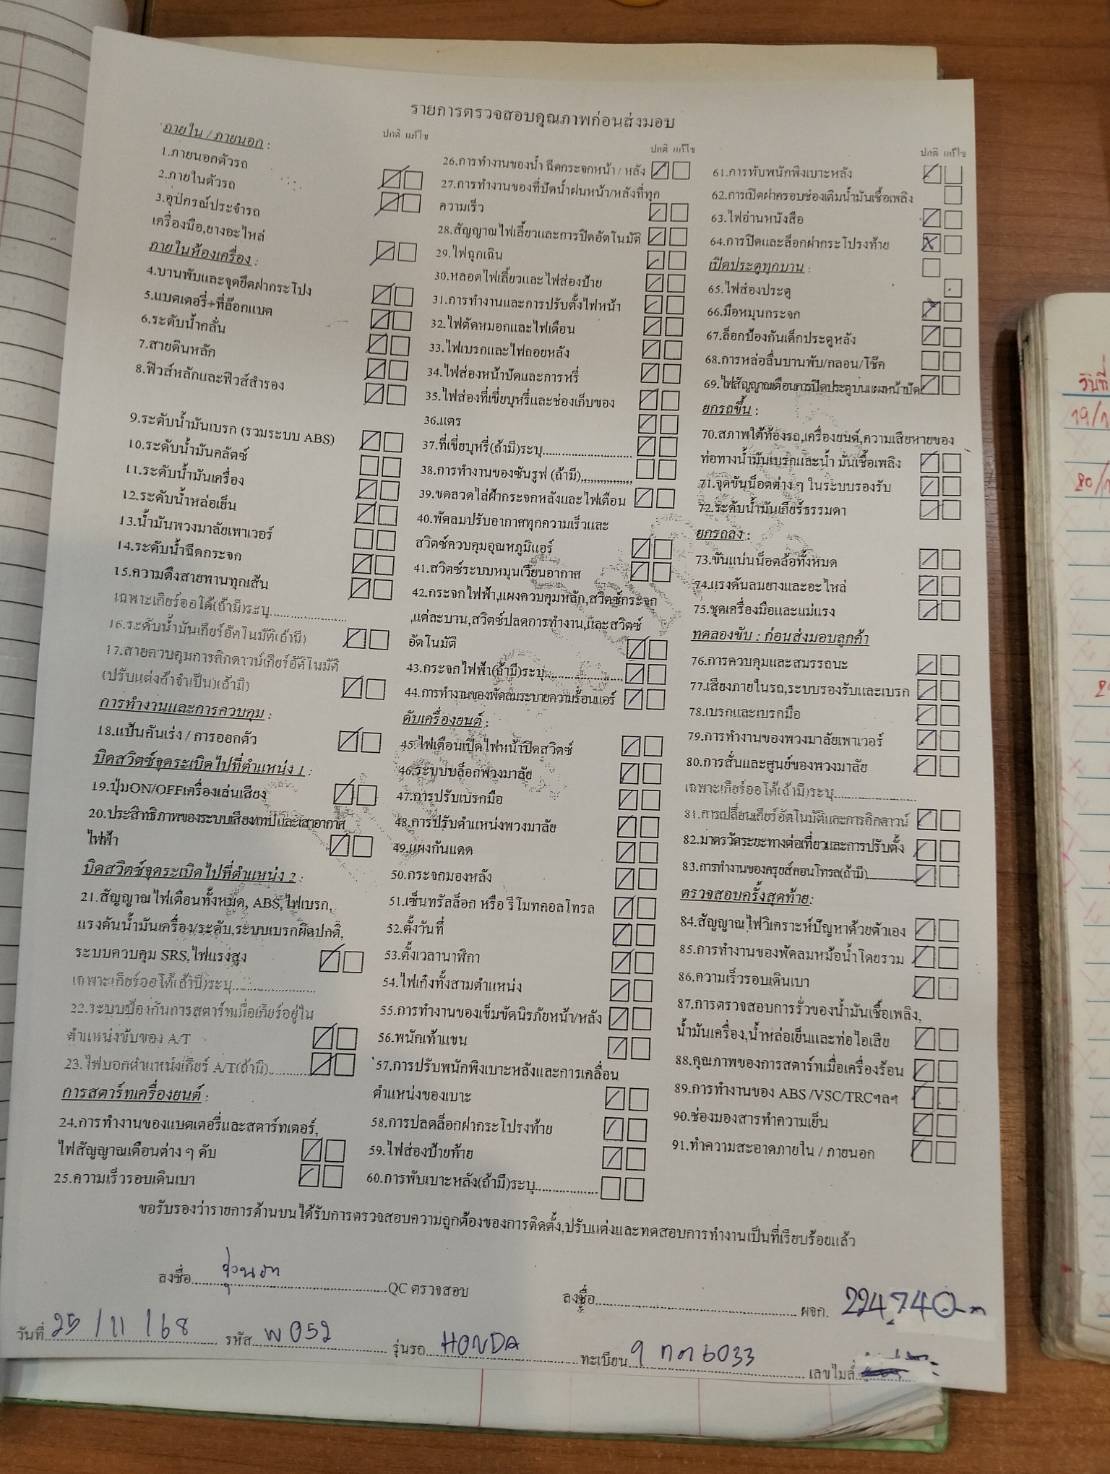 รายการตรวจสอบคุณภาพก่อนส่งมอบ
ภายใน / ภายนอก :
ปกติ แก้ไข
1.ภายนอกตัวรถ
2.ภายในตัวรถ
3.อุปกรณ์ประจำรถ
เครื่องมือ,ยางอะไหล่
ภายในห้องเครื่อง :
4.บานพับและจุดยึดฝากระโปรง
5.แบตเตอรี่+ที่ล๊อกแบต
6.ระดับน้ำกลั่น
7.สายดินหลัก
8.ฟิวส์หลักและฟิวส์สำรอง
9.ระดับน้ำมันเบรก (รวมระบบ ABS)
10.ระดับน้ำมันคลัตช์
11.ระดับน้ำมันเครื่อง
12.ระดับน้ำหล่อเย็น
13.น้ำมันพวงมาลัยเพาเวอร์
14.ระดับน้ำฉีดกระจก
15.ความตึงสายพานทุกเส้น
เฉพาะเกียร์ออโต้(ถ้ามี)ระบุ
16.ระดับน้ำมันเกียร์อัตโนมัติ(ถ้ามี)
17.สายควบคุมการคิกดาวน์เกียร์อัตโนมัติ
(ปรับแต่งถ้าจำเป็น)(ถ้ามี)
การทำงานและการควบคุม :
18.แป้นคันเร่ง / การออกตัว
บิดสวิตซ์จุดระเบิดไปที่ตำแหน่ง 1 :
19.ปุ่มON/OFFเครื่องเล่นเสียง
20.ประสิทธิภาพของระบบเสียงเทปและเสาอากาศ
ไฟฟ้า
บิดสวิตซ์จุดระเบิดไปที่ตำแหน่ง 2 :
21.สัญญาณไฟเตือนทั้งหมด, ABS,ไฟเบรก,
แรงดันน้ำมันเครื่อง/ระดับ,ระบบเบรกผิดปกติ,
ระบบควบคุม SRS,ไฟแรงสูง
เฉพาะเกียร์ออโต้(ถ้ามี)ระบุ
22.ระบบป้องกันการสตาร์ทเมื่อเกียร์อยู่ใน
ตำแหน่งขับของ A/T
23.ไฟบอกตำแหน่งเกียร์ A/T(ถ้ามี)
การสตาร์ทเครื่องยนต์ :
24.การทำงานของแบตเตอรี่และสตาร์ทเตอร์,
ไฟสัญญาณเตือนต่าง ๆ ดับ
25.ความเร็วรอบเดินเบา
ปกติ แก้ไข
26.การทำงานของน้ำ ฉีดกระจกหน้า / หลัง
27.การทำงานของที่ปัดน้ำฝนหน้า/หลังที่ทุก
ความเร็ว
28.สัญญาณไฟเลี้ยวและการปิดอัตโนมัติ
29.ไฟฉุกเฉิน
30.หลอดไฟเลี้ยวและไฟส่องป้าย
31.การทำงานและการปรับตั้งไฟหน้า
32.ไฟตัดหมอกและไฟเตือน
33.ไฟเบรกและไฟถอยหลัง
34.ไฟส่องหน้าปัดและการหรี่
35.ไฟส่องที่เขี่ยบุหรี่และช่องเก็บของ
36.แตร
37.ที่เขี่ยบุหรี่(ถ้ามี)ระบุ
38.การทำงานของซันรูฟ (ถ้ามี)
39.ขดลวดไล่ฝ้ากระจกหลังและไฟเตือน
40.พัดลมปรับอากาศทุกความเร็วและ
สวิตซ์ควบคุมอุณหภูมิแอร์
41.สวิตซ์ระบบหมุนเวียนอากาศ
42.กระจกไฟฟ้า,แผงควบคุมหลัก,สวิตซ์กระจก
แต่ละบาน,สวิตซ์ปลดการทำงาน,และสวิตซ์
อัตโนมัติ
43.กระจกไฟฟ้า(ถ้ามี)ระบุ
44.การทำงานของพัดลมระบายความร้อนแอร์
ดับเครื่องยนต์ :
45.ไฟเตือนเปิดไฟหน้าปิดสวิตซ์
46.ระบบบล็อกพวงมาลัย
47.การปรับเบรกมือ
48.การปรับตำแหน่งพวงมาลัย
49.แผงกันแดด
50.กระจกมองหลัง
51.เซ็นทรัลล็อก หรือ รีโมทคอลโทรล
52.ตั้งวันที่
53.ตั้งเวลานาฬิกา
54.ไฟเก๋งทั้งสามตำแหน่ง
55.การทำงานของเข็มขัดนิรภัยหน้า/หลัง
56.พนักเท้าแขน
57.การปรับพนักพิงเบาะหลังและการเคลื่อน
ตำแหน่งของเบาะ
58.การปลดล็อกฝากระโปรงท้าย
59.ไฟส่องป้ายท้าย
60.การพับเบาะหลัง(ถ้ามี)ระบุ
ปกติ แก้ไข
61.การพับพนักพิงเบาะหลัง
62.การเปิดฝาครอบช่องเติมน้ำมันเชื้อเพลิง
63.ไฟอ่านหนังสือ
64.การปิดและล็อกฝากระโปรงท้าย
เปิดประตูทุกบาน :
65.ไฟส่องประตู
66.มือหมุนกระจก
67.ล็อกป้องกันเด็กประตูหลัง
68.การหล่อลื่นบานพับ/กลอน/โช๊ค
69.ไฟสัญญาณเตือนการปิดประตูบนแผงหน้าปัด
ยกรถขึ้น :
70.สภาพใต้ท้องรถ,เครื่องยนต์,ความเสียหายของ
ท่อทางน้ำมันเบรกและน้ำ มันเชื้อเพลิง
71.จุดขันน็อตต่าง ๆ ในระบบรองรับ
72.ระดับน้ำมันเกียร์ธรรมดา
ยกรถลง :
73.ขันแน่นน็อตล้อทั้งหมด
74.แรงดันลมยางและอะไหล่
75.ชุดเครื่องมือและแม่แรง
ทดลองขับ : ก่อนส่งมอบลูกค้า
76.การควบคุมและสมรรถนะ
77.เสียงภายในรถ,ระบบรองรับและเบรก
78.เบรกและเบรกมือ
79.การทำงานของพวงมาลัยเพาเวอร์
80.การสั่นและศูนย์ของพวงมาลัย
เฉพาะเกียร์ออโต้(ถ้ามี)ระบุ
81.การเปลี่ยนเกียร์อัตโนมัติและการคิกดาวน์
82.มาตรวัดระยะทางต่อเที่ยวและการปรับตั้ง
83.การทำงานของครุยส์คอนโทรล(ถ้ามี)
ตรวจสอบครั้งสุดท้าย:
84.สัญญาณไฟวิเคราะห์ปัญหาด้วยตัวเอง
85.การทำงานของพัดลมหม้อน้ำโดยรวม
86.ความเร็วรอบเดินเบา
87.การตรวจสอบการรั่วของน้ำมันเชื้อเพลิง,
น้ำมันเครื่อง,น้ำหล่อเย็นและท่อไอเสีย
88.คุณภาพของการสตาร์ทเมื่อเครื่องร้อน
89.การทำงานของ ABS /VSC/TRCฯลฯ
90.ช่องมองสารทำความเย็น
91.ทำความสะอาดภายใน / ภายนอก
ขอรับรองว่ารายการด้านบนได้รับการตรวจสอบความถูกต้องของการติดตั้ง,ปรับแต่งและทดสอบการทำงานเป็นที่เรียบร้อยแล้ว
ลงชื่อ QC ตรวจสอบ
ลงชื่อ ผจก. 224,740
วันที่ 25/11/68 รหัส W052 รุ่นรถ HONDA ทะเบียน 9 กก 6033 เลขไมล์
วันที่
19/1
20/1